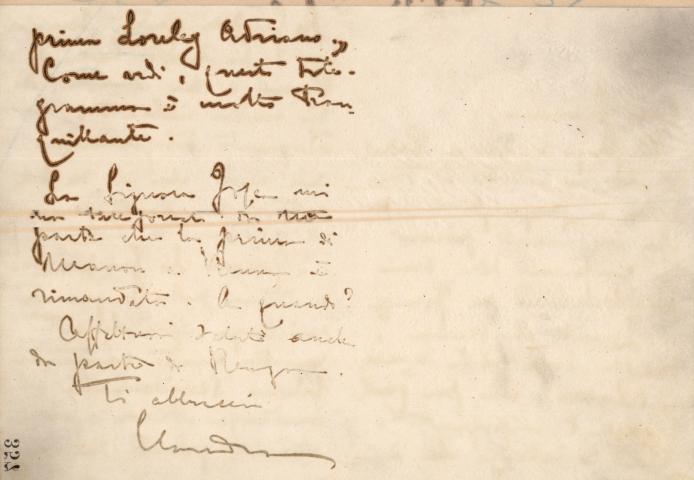 prima Loreley Adriano."
Come vedi, questo tele-
gramma è molto tran-
quillante.
La Signora Josa mi
parte che la prima di
Manon a è
rimandata. A quando?
Affettuosi saluti anche
da parte di
Ti abbraccio
352